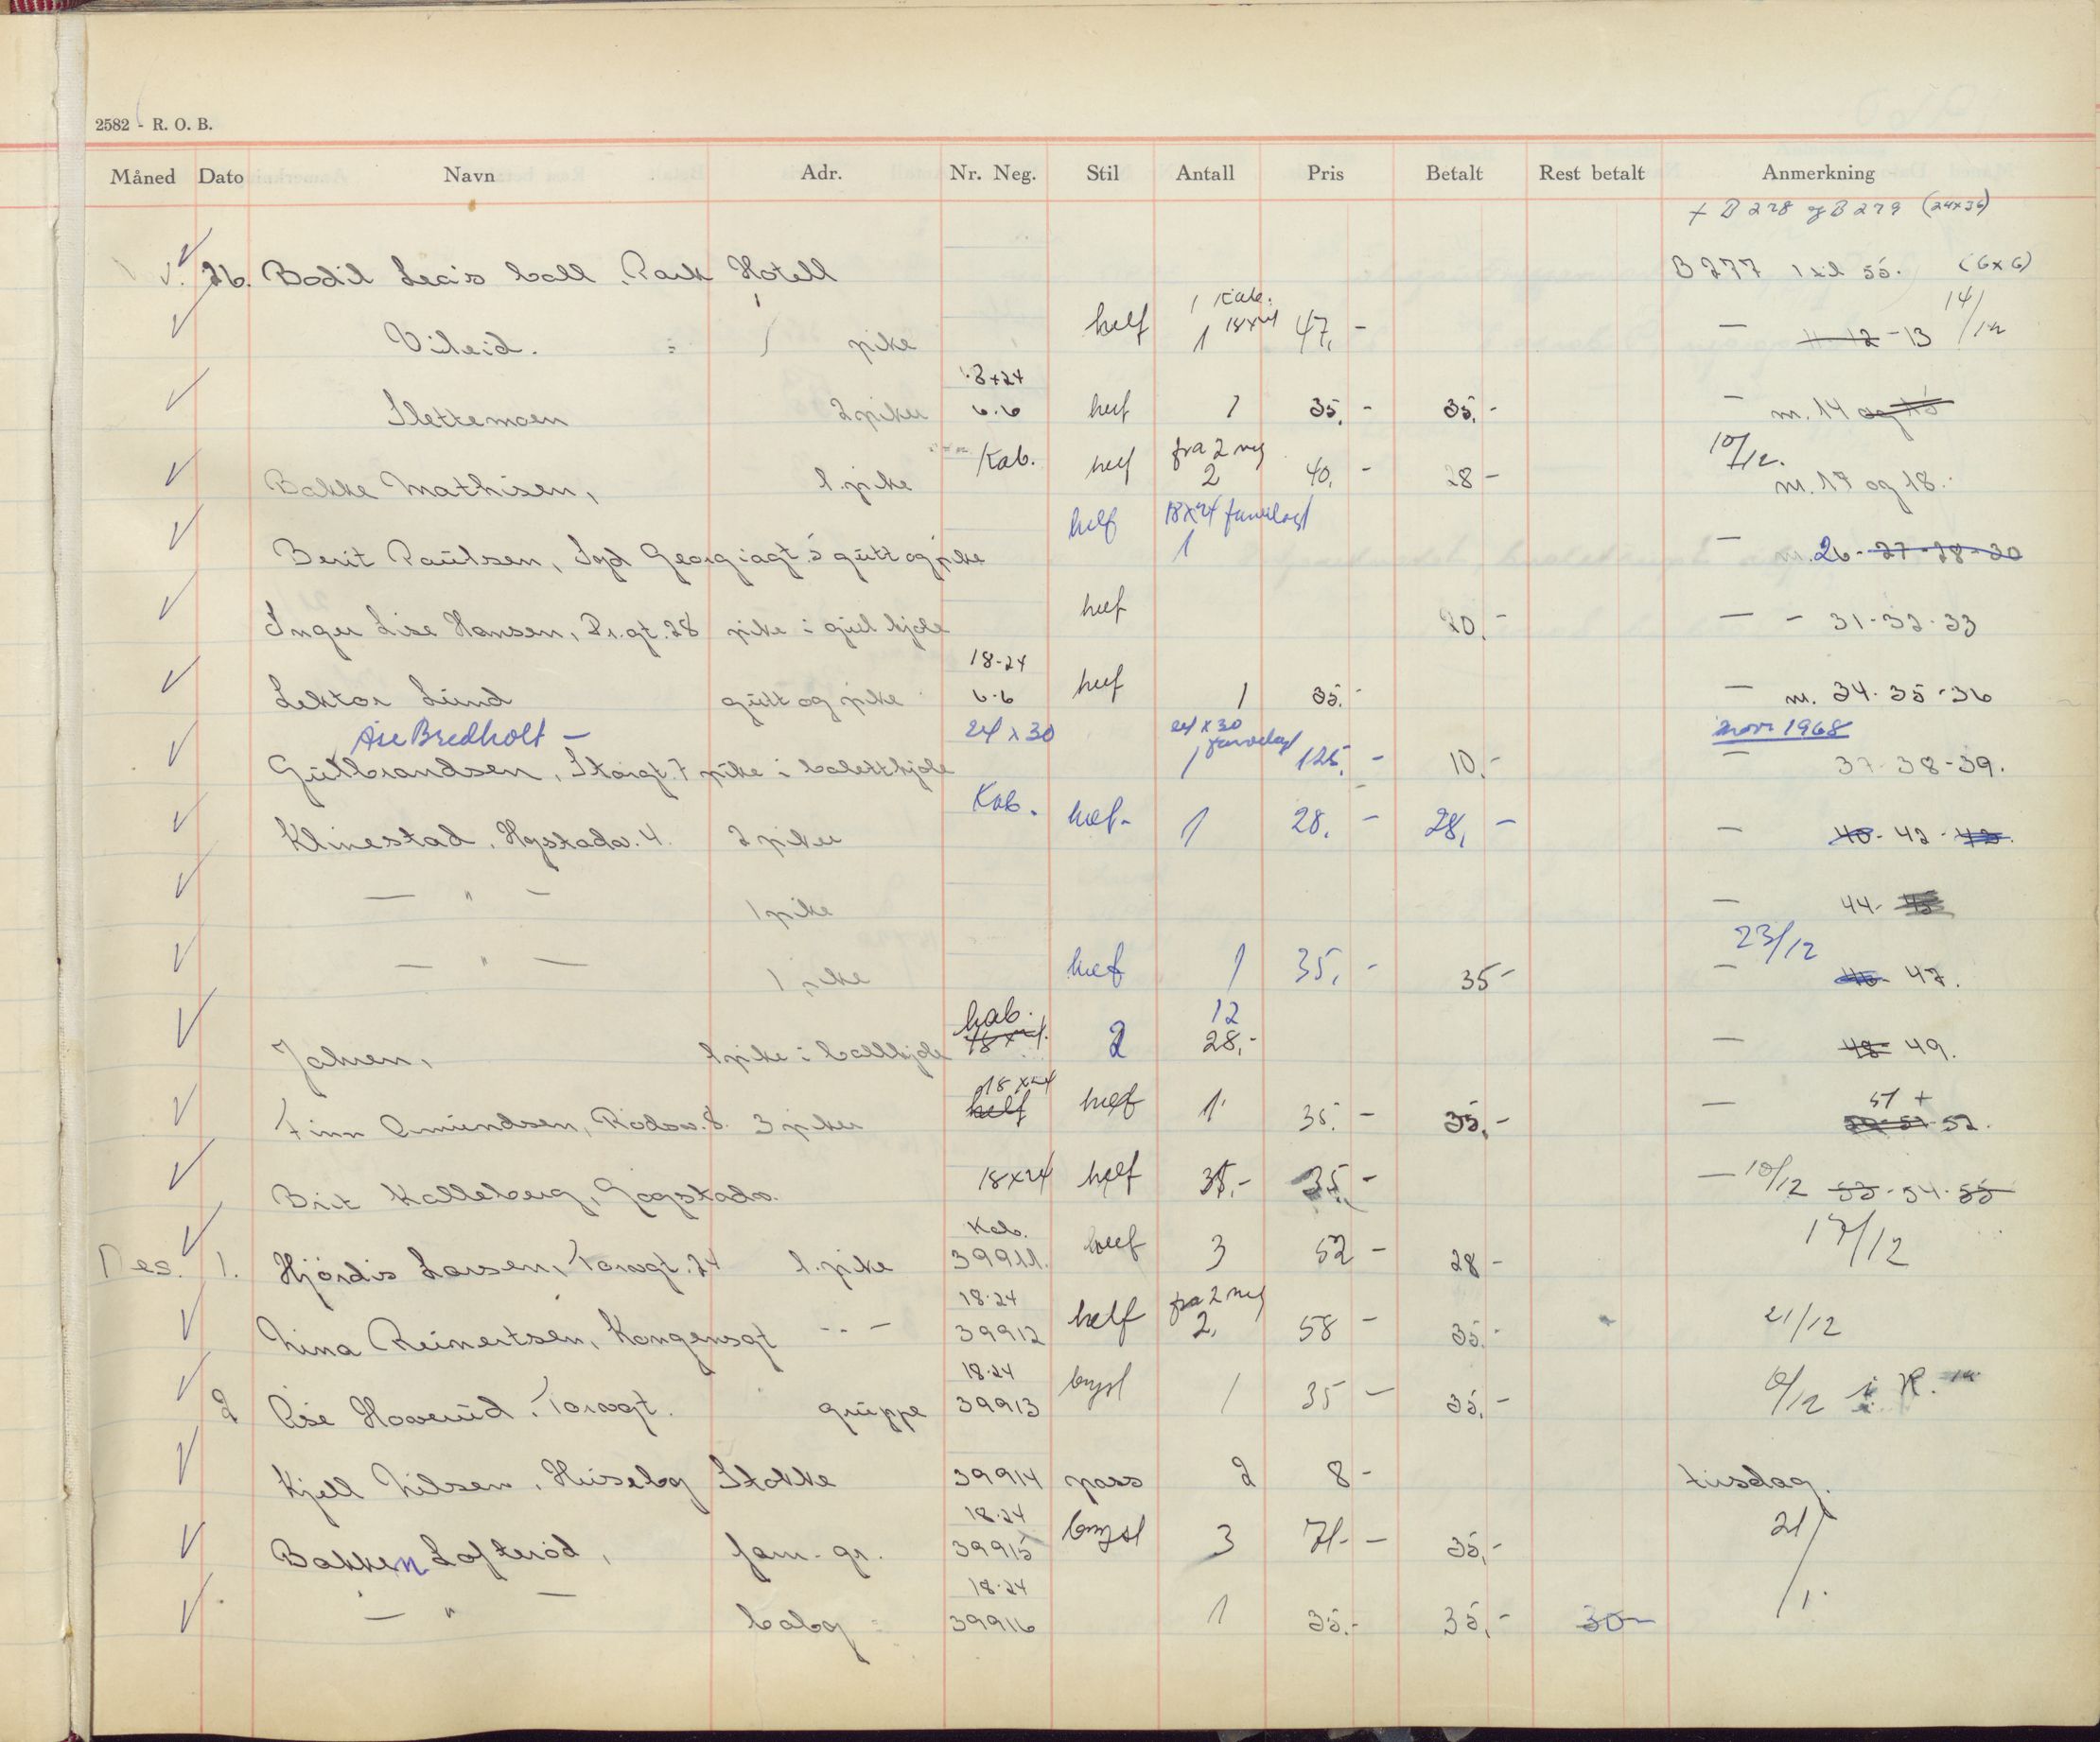 2582 - R. O. B.
Måned Dato Navn Adr. Nr. Neg. Stil Antall Pris Betalt Rest betalt Anmerkning
+ B 278 og B 279 (24x36)
26. Bodil Lea's ball. Park Hotell B 277 1 til 55. (6x6)
1 Kab. 14/12
pike helf 1 18x24 47,- — 11-12-13
18x24
Slettemoen 2 piker 6.6 helf 1 35,- 35,- — m. 14 og 15
fra 2 neg 10/12.
Bakke Mathisen, 1. pike Kab. helf 2 40,- 28- m. 17 og 18.
18x24
Berit Paulsen, Syd Georgiagt. 5 gutt og pike helf 1 — m. 26-27-28-30
Inger Lise Hansen, Pr.gt. 28 pike i gul kjole helf 20,- — - 31-32-33
18-24
Lektor Lund gutt og pike 6.6 helf 1 35,- — m. 34-35-36
Åse Bredholt — 24x30 24x30 nov 1968
Gulbrandsen, Storgt. 7 pike i balettkjole 1 125,- 10,- — 37-38-39.
Klinestad, Hystadv. 4. 2 piker Kab. hel- 1 28,- 28,- — 40-42-43.
— " — 1 pike — 44-45
23/12
— " — 1 pike helf 1 35,- 35- — 46 47.
kab. 12
Jahren, 1 pike i ballkjole 18x24. 2 28,- — 48- 49.
18x24 51 +
Finn Amundsen, Rodsv. 8. 3 piker helf helf 1 35,- 35,- — 50-51-52.
Brit Kalleberg, Gogstadv. 18x24 helf 35,- 35,- — 10/12 53-54-55
Kab.
Des. 1. Hjördis Larsen, Torvgt. 24 1. pike 39911. helf 3 52- 28- 17/12
18-24 fra 2 neg
Nina Reinertsen, Kongensgt - " - 39912 helf 2, 58- 35,- 21/12
18-24
2 Åse Haverud, Torvgt. gruppe 39913 byst 1 35- 35,-
Kjell Nilsen, Huseby Stokke 39914 pass 2 8- tirsdag.
18-24
Bakken Lofterød, fam. gr. 39915 byst 3 71- 35,- 21/1.
18-24
— " — baby 39916 1 35,- 35,- 30-